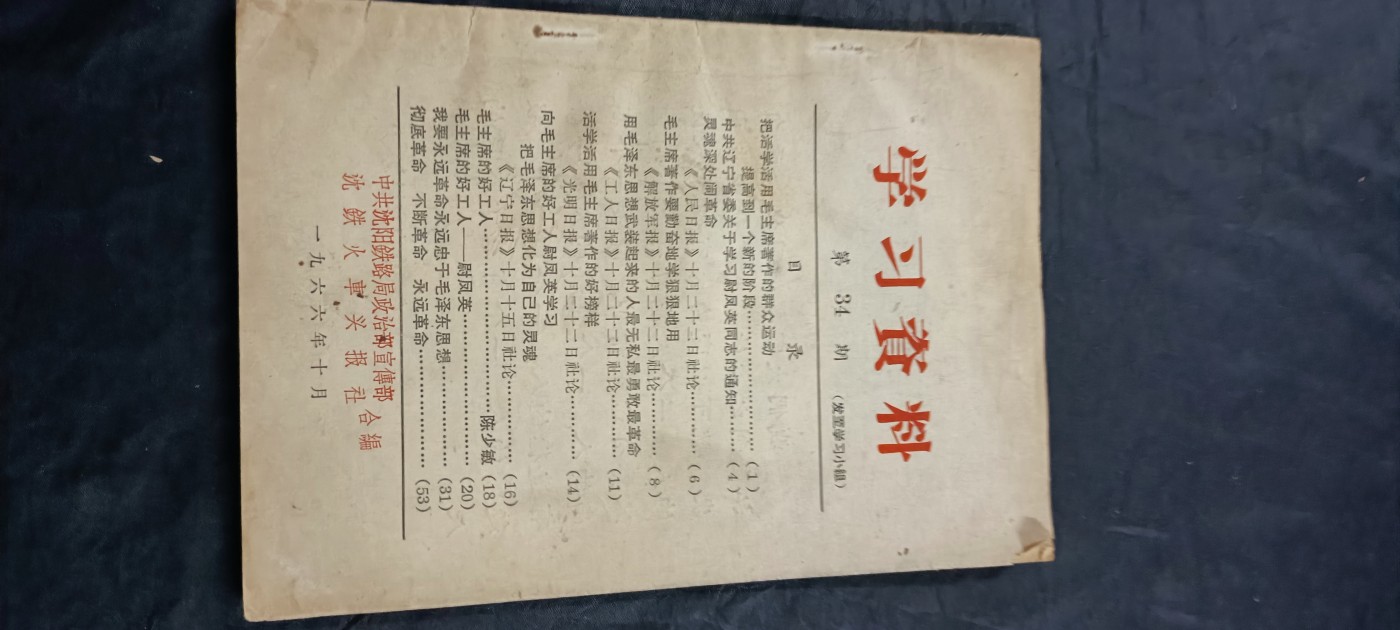 学习資料
第 34 期 （发至学习小組）
目 录
把活学活用毛主席著作的群众运动
提高到一个新的阶段………………（1）
中共辽宁省委关于学习尉凤英同志的通知……（4）
灵魂深处闹革命
《人民日报》十月二十二日社论………（6）
毛主席著作要勤奋地学狠狠地用
《解放军报》十月二十二日社论………（8）
用毛泽东思想武装起来的人最无私最勇敢最革命
《工人日报》十月二十二日社论………（11）
活学活用毛主席著作的好榜样
《光明日报》十月二十二日社论………（14）
向毛主席的好工人尉凤英学习
把毛泽东思想化为自己的灵魂
《辽宁日报》十月十五日社论…………（16）
毛主席的好工人…………………………陈少敏（18）
毛主席的好工人——尉凤英……………………（20）
我要永远革命永远忠于毛泽东思想……………（31）
彻底革命 不断革命 永远革命………………（53）
中共沈阳鉄路局政治部宣傳部
沈鉄火車头报社
合編
一九六六年十月